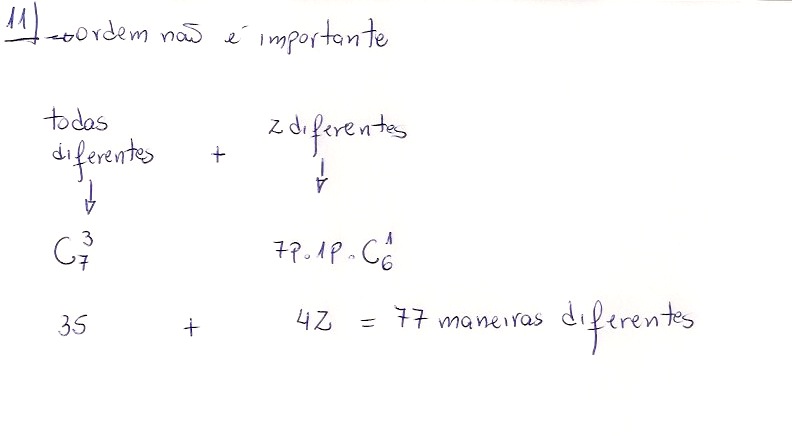 11) → ordem não é importante
todas
diferentes + 2 diferentes
↓ ↓
C₇³ 7p.1p.C₆¹
35 + 42 = 77 maneiras diferentes